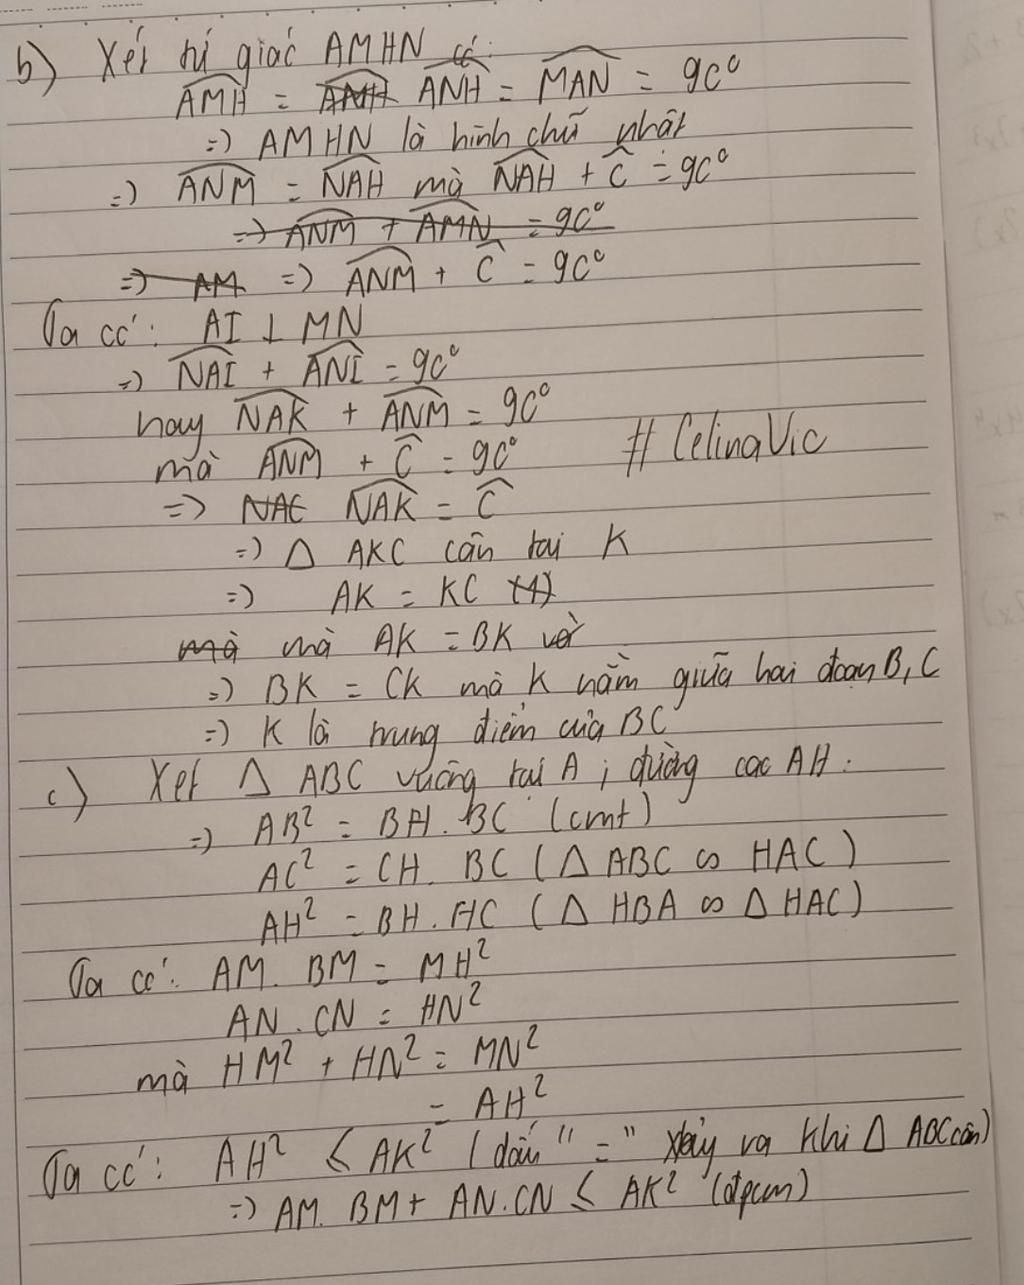 b) Xét tứ giác AMHN có:
AMH = AMH ANH = MAN = 90°
=) AMHN là hình chữ nhật
=) ANM = NAH mà NAH + C = 90°
=) ANM + AMN = 90°
=) AM =) ANM + C = 90°
Ta có: AI ⊥ MN
=) NAI + ANI = 90°
hay NAK + ANM = 90°
mà ANM + C = 90° # CelinaVic
=> NAC NAK = C
=) Δ AKC cân tại K
=) AK = KC (1)
mà mà AK = BK
=) BK = CK mà K nằm giữa hai đoạn B, C
=) K là trung điểm của BC
c) Xét Δ ABC vuông tại A ; đường cao AH :
=) AB² = BH. BC (cmt)
AC² = CH. BC (Δ ABC ∽ HAC)
AH² = BH. HC (Δ HBA ∽ Δ HAC)
Ta có: AM. BM = MH²
AN. CN = HN²
mà HM² + HN² = MN²
= AH²
Ta có: AH² ≤ AK² (dấu "=" xảy ra khi Δ ABC cân)
=) AM. BM + AN. CN ≤ AK² (đpcm)